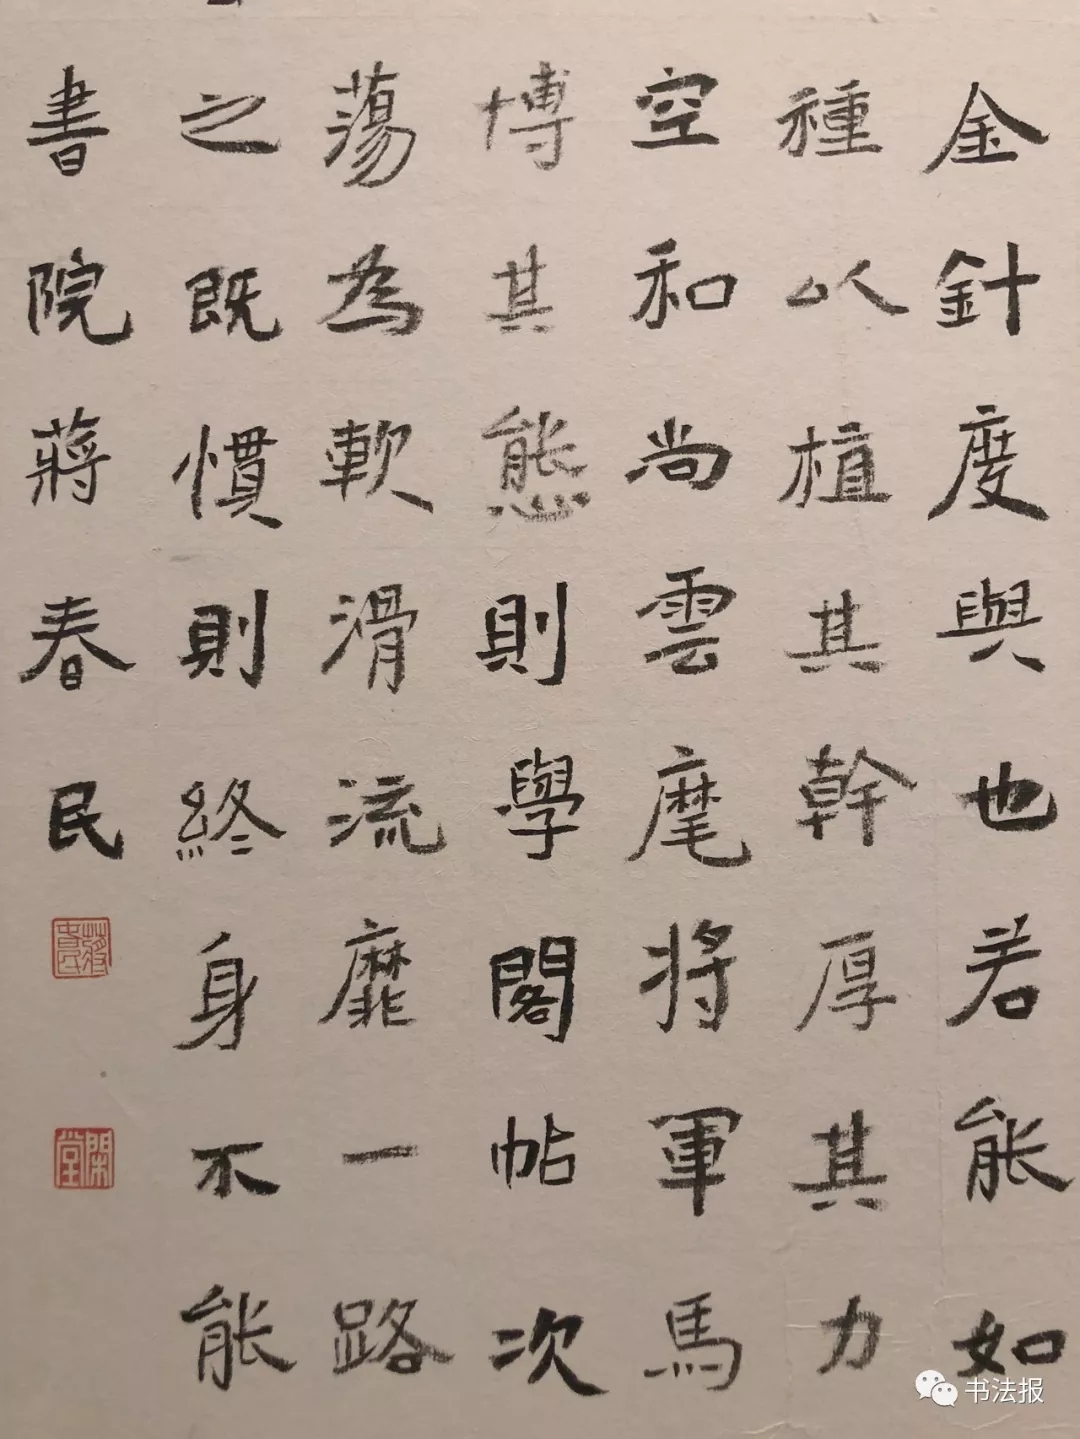 金針度與也若能如
種以植其幹厚其力
空和尚雲麾將軍馬
博其態則學閣帖次
蕩為軟滑流靡一路
之既慣則終身不能
書院蔣春民
蔣春民
閑堂
书法报